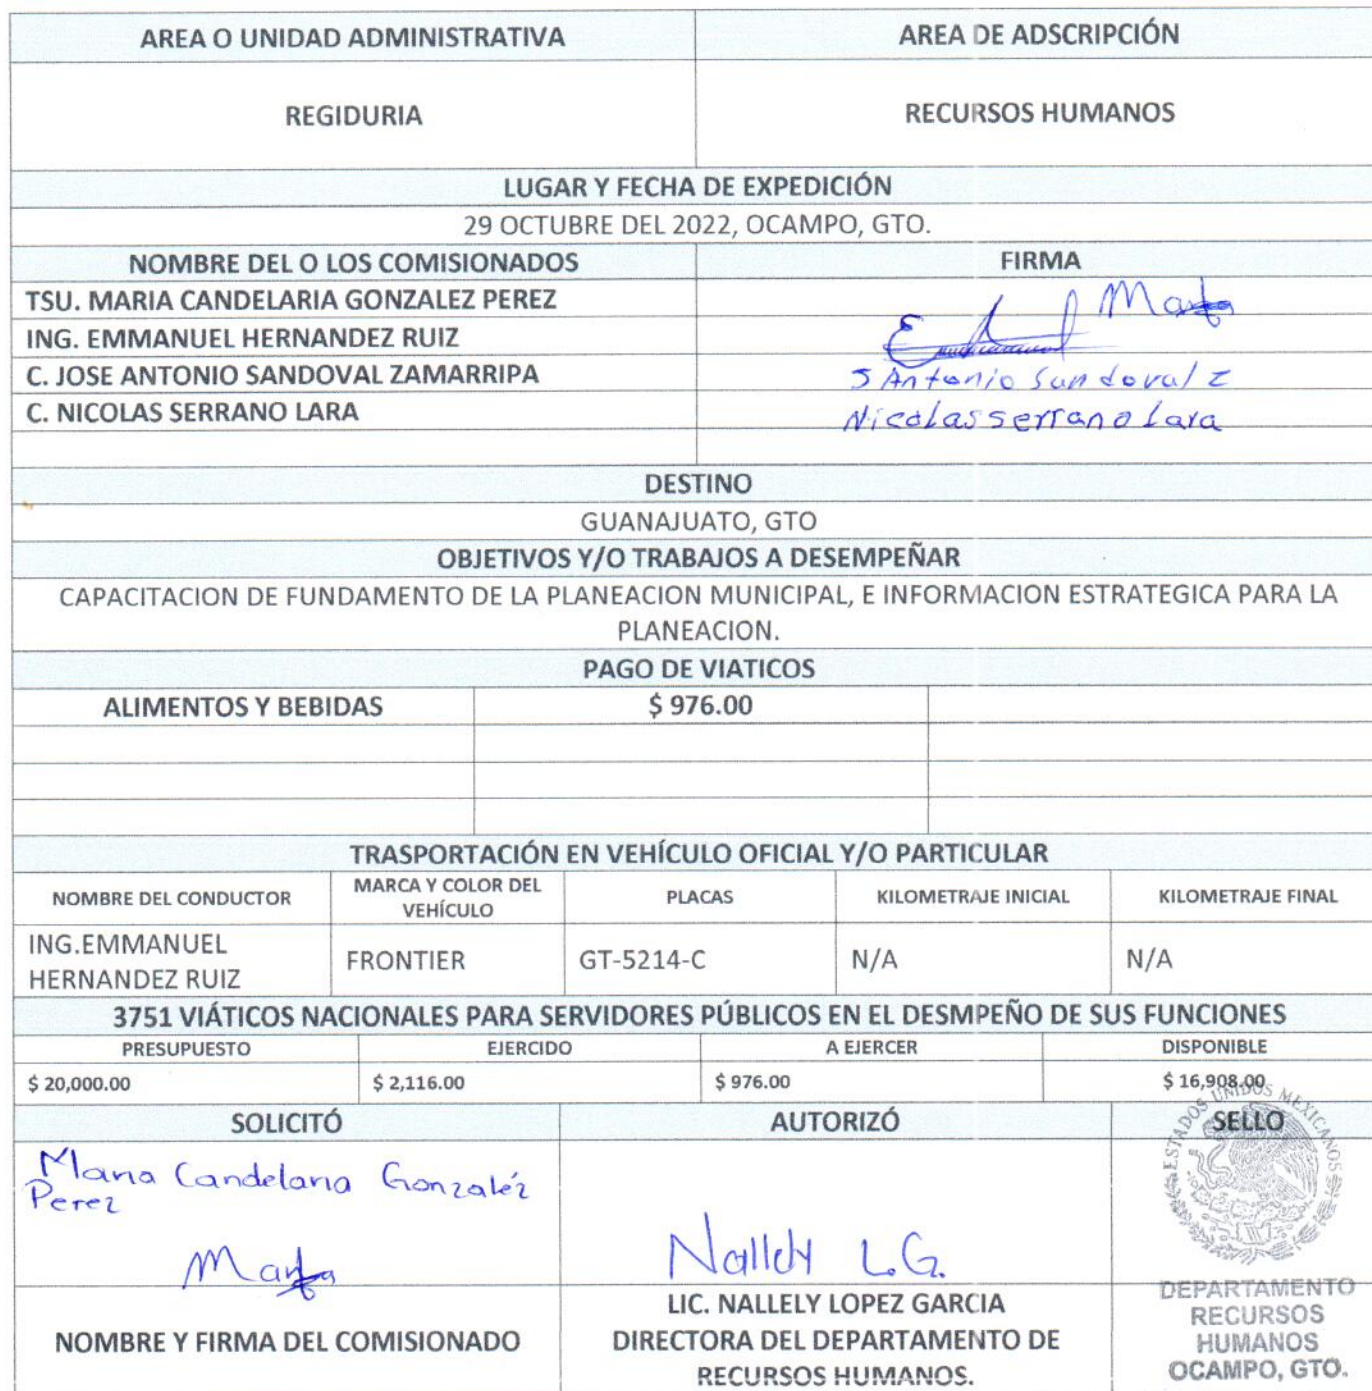 AREA O UNIDAD ADMINISTRATIVA AREA DE ADSCRIPCIÓN
REGIDURIA RECURSOS HUMANOS
LUGAR Y FECHA DE EXPEDICIÓN
29 OCTUBRE DEL 2022, OCAMPO, GTO.
NOMBRE DEL O LOS COMISIONADOS FIRMA
TSU. MARIA CANDELARIA GONZALEZ PEREZ
ING. EMMANUEL HERNANDEZ RUIZ
C. JOSE ANTONIO SANDOVAL ZAMARRIPA J Antonio Sandoval Z
C. NICOLAS SERRANO LARA Nicolas serrano Lara
DESTINO
GUANAJUATO, GTO
OBJETIVOS Y/O TRABAJOS A DESEMPEÑAR
CAPACITACION DE FUNDAMENTO DE LA PLANEACION MUNICIPAL, E INFORMACION ESTRATEGICA PARA LA
PLANEACION.
PAGO DE VIATICOS
ALIMENTOS Y BEBIDAS $ 976.00
TRASPORTACIÓN EN VEHÍCULO OFICIAL Y/O PARTICULAR
NOMBRE DEL CONDUCTOR MARCA Y COLOR DEL VEHÍCULO PLACAS KILOMETRAJE INICIAL KILOMETRAJE FINAL
ING.EMMANUEL HERNANDEZ RUIZ FRONTIER GT-5214-C N/A N/A
3751 VIÁTICOS NACIONALES PARA SERVIDORES PÚBLICOS EN EL DESMPEÑO DE SUS FUNCIONES
PRESUPUESTO EJERCIDO A EJERCER DISPONIBLE
$ 20,000.00 $ 2,116.00 $ 976.00 $ 16,908.00
SOLICITÓ AUTORIZÓ SELLO
ESTADOS UNIDOS MEXICANOS
Maria Candelaria Gonzaléz
Perez
Nallely L.G.
NOMBRE Y FIRMA DEL COMISIONADO
LIC. NALLELY LOPEZ GARCIA
DIRECTORA DEL DEPARTAMENTO DE
RECURSOS HUMANOS.
DEPARTAMENTO
RECURSOS
HUMANOS
OCAMPO, GTO.